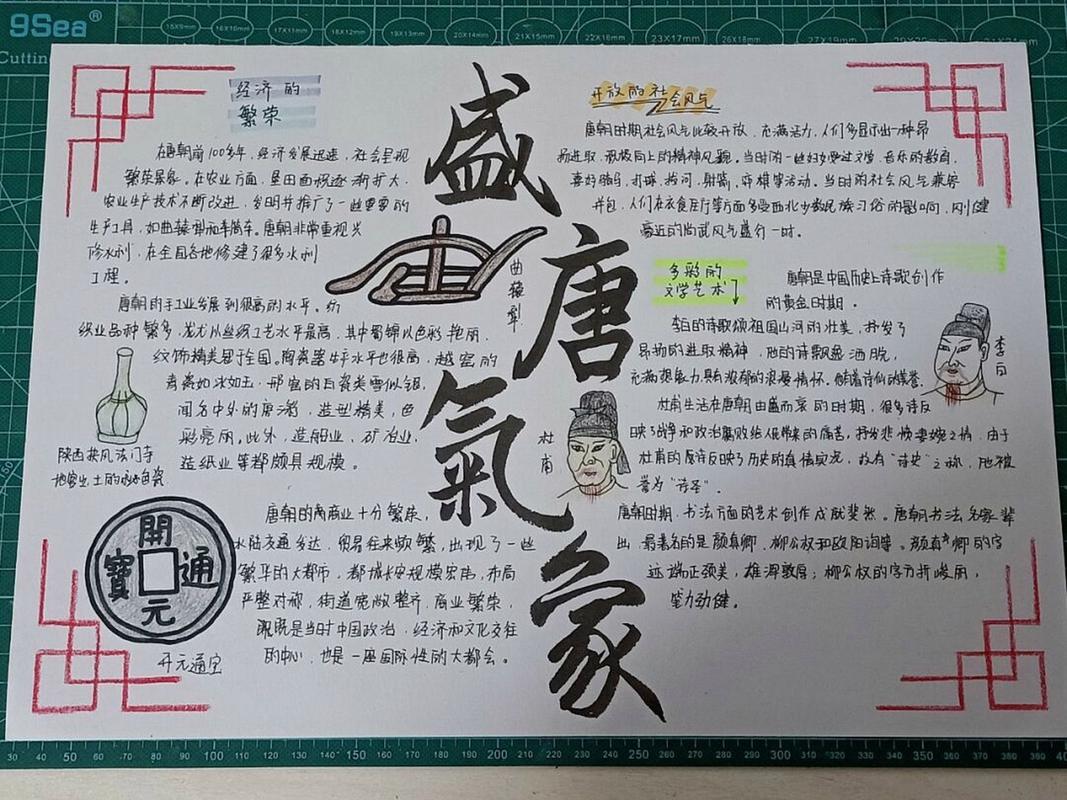 盛
唐
氣
象
经济的
繁荣
在唐朝前100多年，经济发展迅速，社会呈现
繁荣景象。在农业方面，垦田面积逐渐扩大，
农业生产技术不断改进，发明并推广了一些重要的
生产工具，如曲辕犁和筒车。唐朝非常重视兴
修水利，在全国各地修建了很多水利
工程。
曲辕犁
唐朝的手工业发展到很高的水平。纺
织业品种繁多，尤以丝织工艺水平最高，其中蜀锦以色彩艳丽，
纹饰精美冠于全国。陶瓷器生产水平也很高，越窑的
青瓷如冰如玉，邢窑的白瓷类雪似银，
闻名中外的唐三彩，造型精美，色
彩亮丽。此外，造船业、矿冶业、
造纸业等都颇具规模。
陕西扶风法门寺
地宫出土的秘色瓷
唐朝的商业十分繁荣，
水陆交通发达，贸易往来频繁，出现了一些
繁华的大都市，都城长安规模宏伟，布局
严整对称，街道宽敞整齐，商业繁荣，
既是当时中国政治、经济和文化交往
的中心，也是一座国际性的大都会。
開元通寶
开元通宝
开放的社会风气
唐朝时期社会风气比较开放，充满活力，人们多显示出一种昂
扬进取、积极向上的精神风貌。当时的一些妇女受过文学、音乐的教育，
喜好骑马、打球、拔河、射箭、弈棋等活动。当时的社会风气兼容
并包，人们在衣食住行等方面多受西北少数民族习俗的影响，刚健
豪迈的尚武风气盛行一时。
多彩的
文学艺术
唐朝是中国历史上诗歌创作
的黄金时期。
李白的诗歌颂祖国山河的壮美，抒发了
昂扬的进取精神，他的诗歌飘逸洒脱，
充满想象力，具有浓郁的浪漫情怀。他有着诗仙的美誉。
李白
杜甫生活在唐朝由盛而衰的时期，很多诗反
映了战争和政治腐败给人民带来的痛苦，抒发悲愤凄婉之情，由于
杜甫的层诗反映了历史的真情实况，故有“诗史”之称，他被
誉为“诗圣”。
杜甫
唐朝时期，书法方面的艺术创作成就斐然。唐朝书法名家辈
出，最著名的是颜真卿、柳公权和欧阳询等。颜真卿的字
迹端正劲美，雄浑敦厚；柳公权的字方折峻丽，
笔力劲健。
9Sea®
Cutting